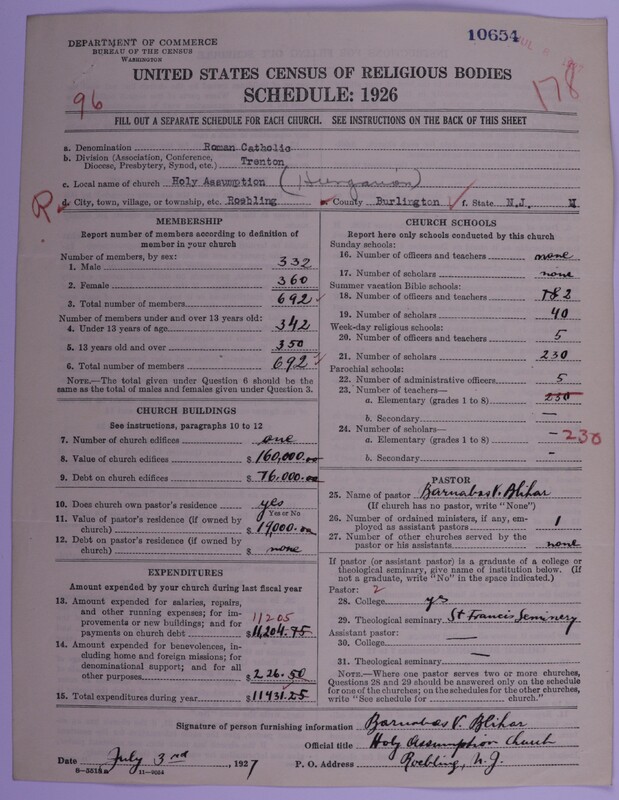 DEPARTMENT OF COMMERCE
BUREAU OF THE CENSUS
WASHINGTON
10654
96
178
UNITED STATES CENSUS OF RELIGIOUS BODIES
SCHEDULE: 1926
FILL OUT A SEPARATE SCHEDULE FOR EACH CHURCH. SEE INSTRUCTIONS ON THE BACK OF THIS SHEET
a. Denomination Roman Catholic
b. Division (Association, Conference, Diocese, Presbytery, Synod, etc.) Trenton
c. Local name of church Holy Assumption (Hungarian)
R d. City, town, village, or township, etc. Roebling e. County Burlington f. State N.J.
MEMBERSHIP
Report number of members according to definition of
member in your church
Number of members, by sex:
1. Male 332
2. Female 360
3. Total number of members 692
Number of members under and over 13 years old:
4. Under 13 years of age 342
5. 13 years old and over 350
6. Total number of members 692
NOTE.—The total given under Question 6 should be the
same as the total of males and females given under Question 3.
CHURCH BUILDINGS
See instructions, paragraphs 10 to 12
7. Number of church edifices one
8. Value of church edifices $ 160,000.00
9. Debt on church edifices $ 76.000.00
10. Does church own pastor's residence yes
Yes or No
11. Value of pastor's residence (if owned by
church) $ 19000.00
12. Debt on pastor's residence (if owned by
church) $ none
EXPENDITURES
Amount expended by your church during last fiscal year
13. Amount expended for salaries, repairs,
and other running expenses; for im-
provements or new buildings; and for 11205
payments on church debt $ 11,204.75
14. Amount expended for benevolences,
including home and foreign missions; for
denominational support; and for all
other purposes $ 226.50
15. Total expenditures during year $ 11431.25
CHURCH SCHOOLS
Report here only schools conducted by this church
Sunday schools:
16. Number of officers and teachers none
17. Number of scholars none
Summer vacation Bible schools:
18. Number of officers and teachers 2
19. Number of scholars 40
Week-day religious schools:
20. Number of officers and teachers 5
21. Number of scholars 230
Parochial schools:
22. Number of administrative officers 5
23. Number of teachers—
a. Elementary (grades 1 to 8) 230
b. Secondary —
24. Number of scholars—
a. Elementary (grades 1 to 8) – 230
b. Secondary –
PASTOR
25. Name of pastor Barnabas V. Blihar
(If church has no pastor, write "None")
26. Number of ordained ministers, if any, em-
ployed as assistant pastors 1
27. Number of other churches served by the
pastor or his assistants none
If pastor (or assistant pastor) is a graduate of a college or
theological seminary, give name of institution below. (If
not a graduate, write "No" in the space indicated.)
Pastor: 2
28. College yes
29. Theological seminary St Francis Seminery
Assistant pastor:
30. College —
31. Theological seminary —
NOTE.—Where one pastor serves two or more churches,
Questions 28 and 29 should be answered only on the schedule
for one of the churches; on the schedules for the other churches,
write "See schedule for church."
Signature of person furnishing information Barnabas V. Blihar
Official title Holy Assumption Church
Date July 3rd, 1927 P. O. Address Roebling, N.J.
8—5518a 11—9054